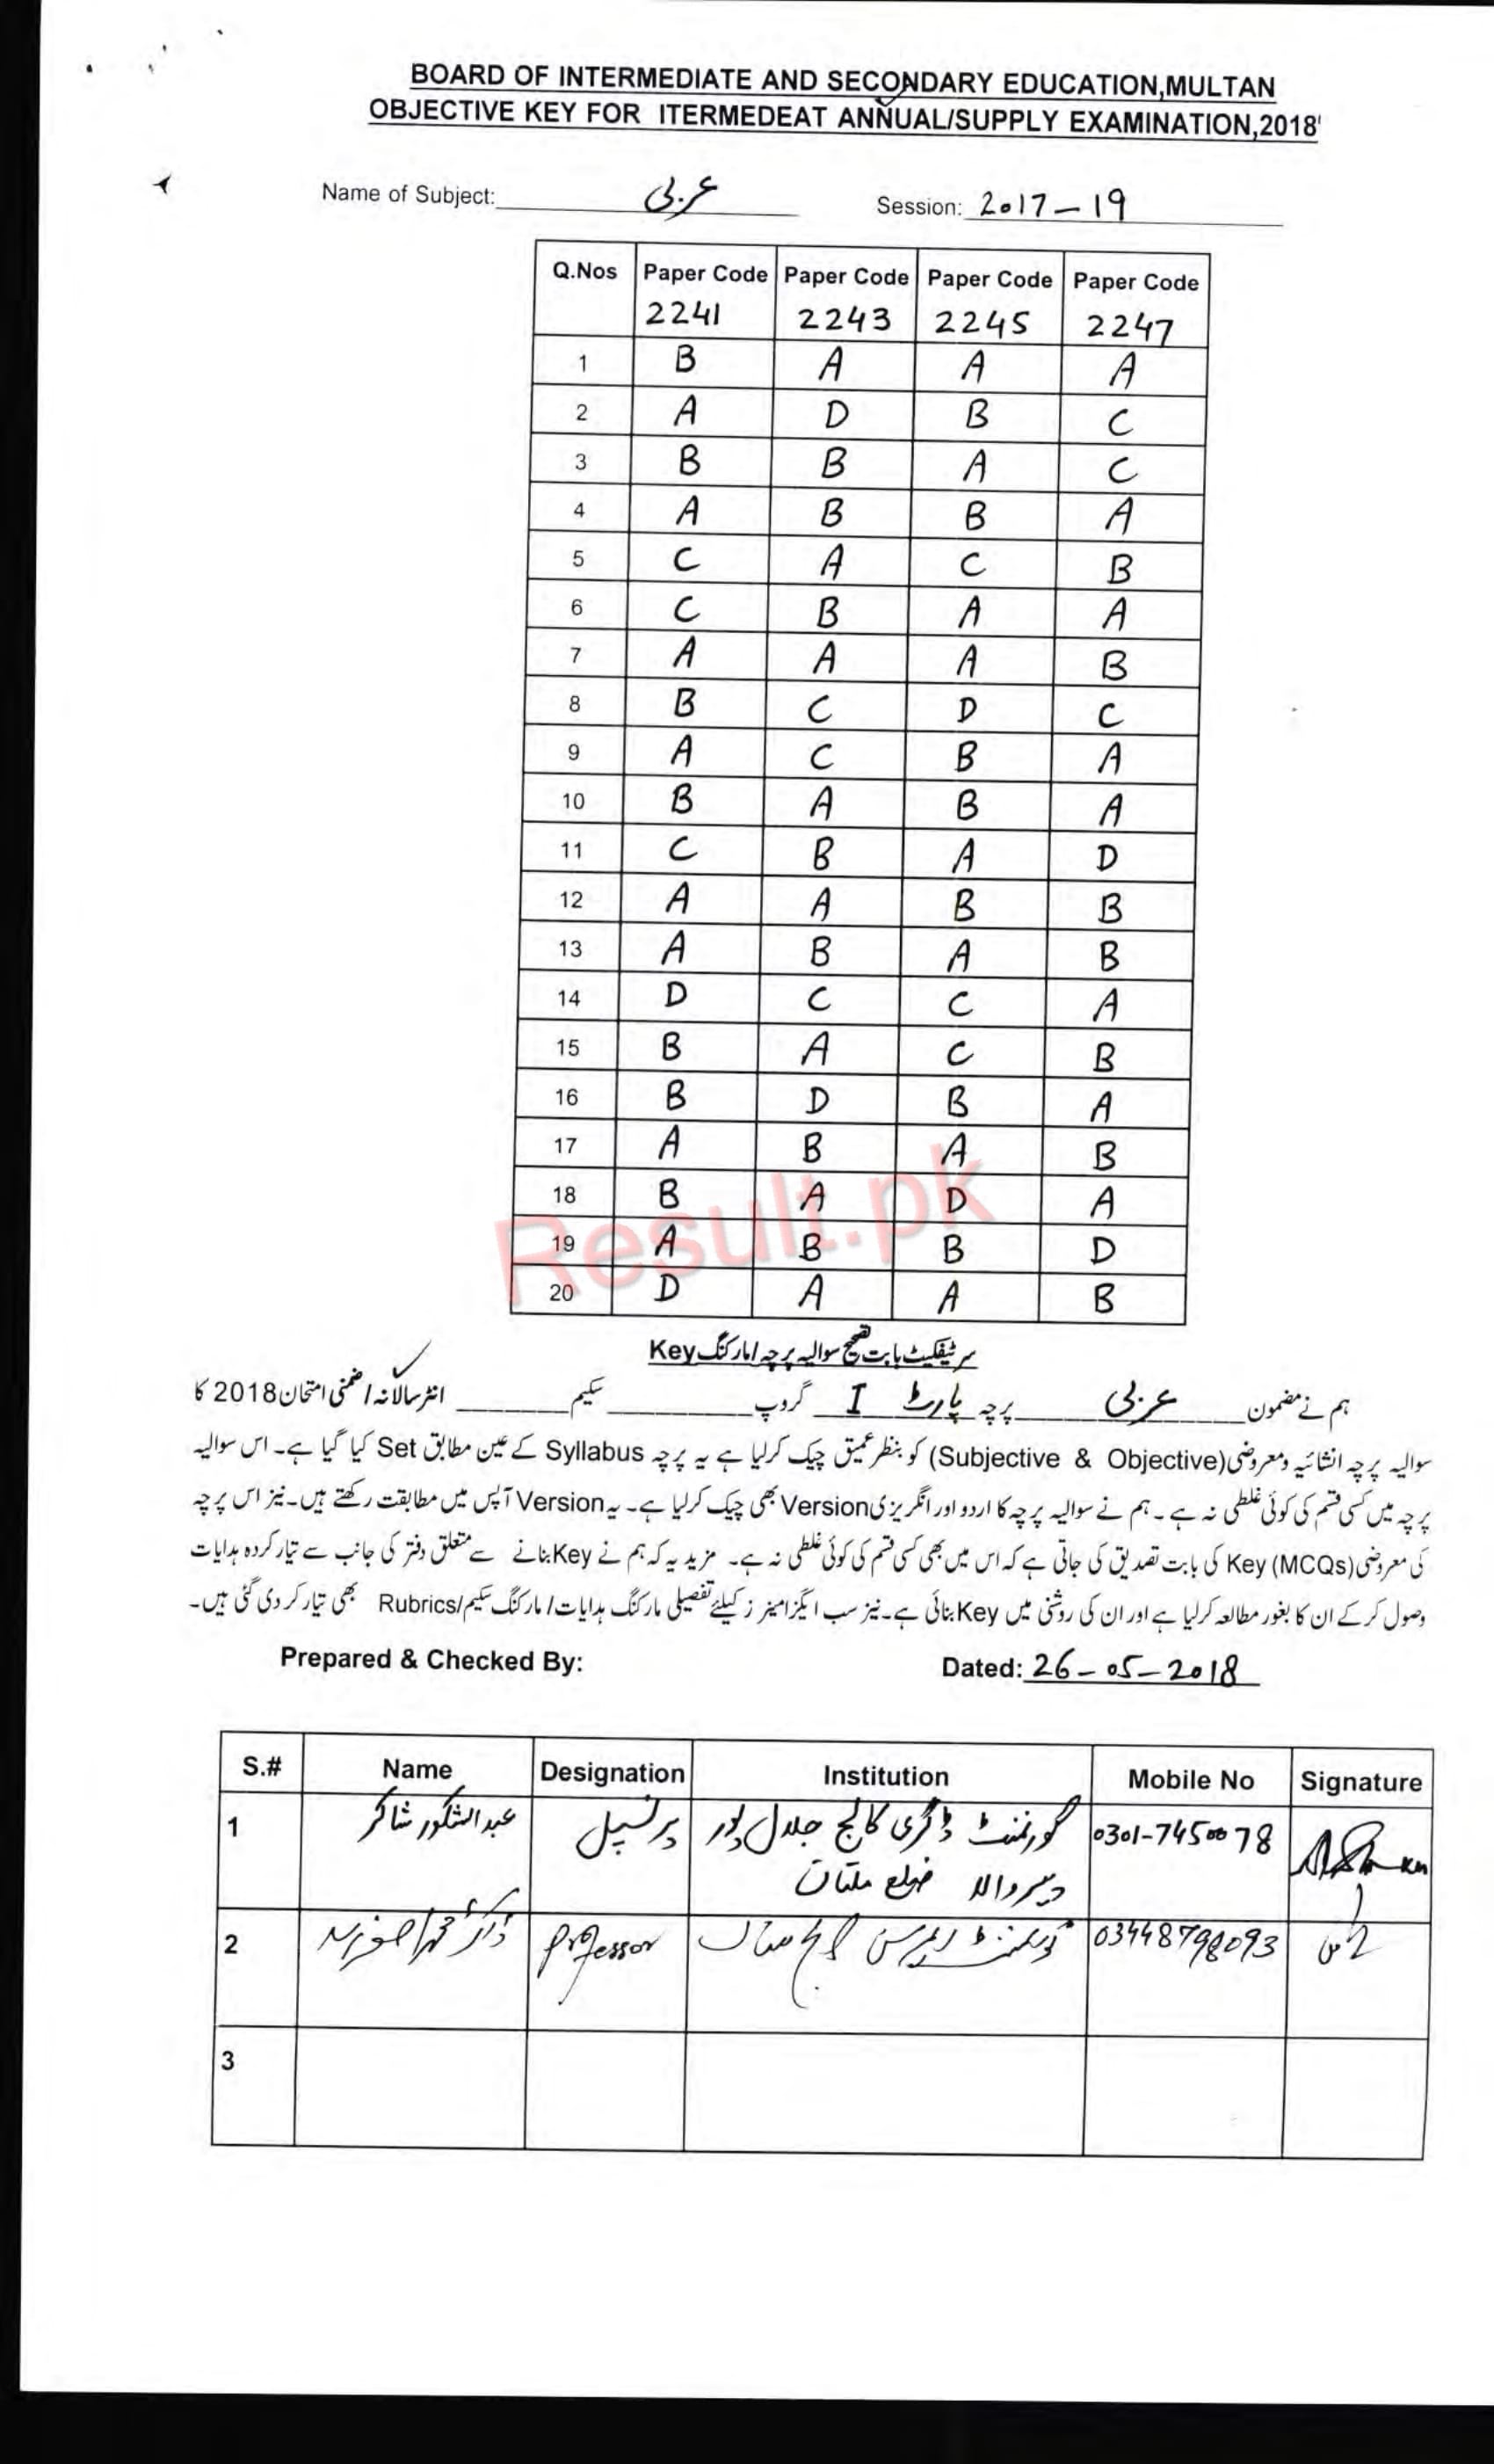 BOARD OF INTERMEDIATE AND SECONDARY EDUCATION,MULTAN
OBJECTIVE KEY FOR ITERMEDEAT ANNUAL/SUPPLY EXAMINATION,2018
Name of Subject: عربی Session: 2017-19
Q.Nos Paper Code Paper Code Paper Code Paper Code
2241 2243 2245 2247
1 B A A A
2 A D B C
3 B B A C
4 A B B A
5 C A C B
6 C B A A
7 A A A B
8 B C D C
9 A C B A
10 B A B A
11 C B A D
12 A A B B
13 A B A B
14 D C C A
15 B A C B
16 B D B A
17 A B A B
18 B A D A
19 A B B D
20 D A A B
Result.pk
سرٹیفکیٹ بابت تصحیح سوالیہ پرچہ / مارکنگ Key
ہم نے مضمون عربی پرچہ پارٹ I گروپ سکیم انٹر سالانہ / ضمنی امتحان 2018 کا
سوالیہ پرچہ انشائیہ ومعروضی (Subjective & Objective) کو بنظر عمیق چیک کرلیا ہے یہ پرچہ Syllabus کے عین مطابق Set کیا گیا ہے۔ اس سوالیہ
پرچہ میں کسی قسم کی کوئی غلطی نہ ہے۔ ہم نے سوالیہ پرچہ کا اردو اور انگریزی Version بھی چیک کرلیا ہے۔ یہ Version آپس میں مطابقت رکھتے ہیں۔ نیز اس پرچہ
کی معروضی (MCQs) Key کی بابت تصدیق کی جاتی ہے کہ اس میں بھی کسی قسم کی کوئی غلطی نہ ہے۔ مزید یہ کہ ہم نے Key بنانے سے متعلق دفتر کی جانب سے تیار کردہ ہدایات
وصول کرکے ان کا بغور مطالعہ کرلیا ہے اور ان کی روشنی میں Key بنائی ہے۔ نیز سب ایگزامینرز کیلئے تفصیلی مارکنگ ہدایات / مارکنگ سکیم / Rubrics بھی تیار کر دی گئی ہیں۔
Prepared & Checked By: Dated: 26-05-2018
S.# Name Designation Institution Mobile No Signature
1 عبدالشکور شاکر پرنسپل گورنمنٹ ڈگری کالج جلال پور 0301-7450078
پیروالا ضلع ملتان
2 ڈاکٹر محمد Professor گورنمنٹ کالج ملتان 03448798093
3